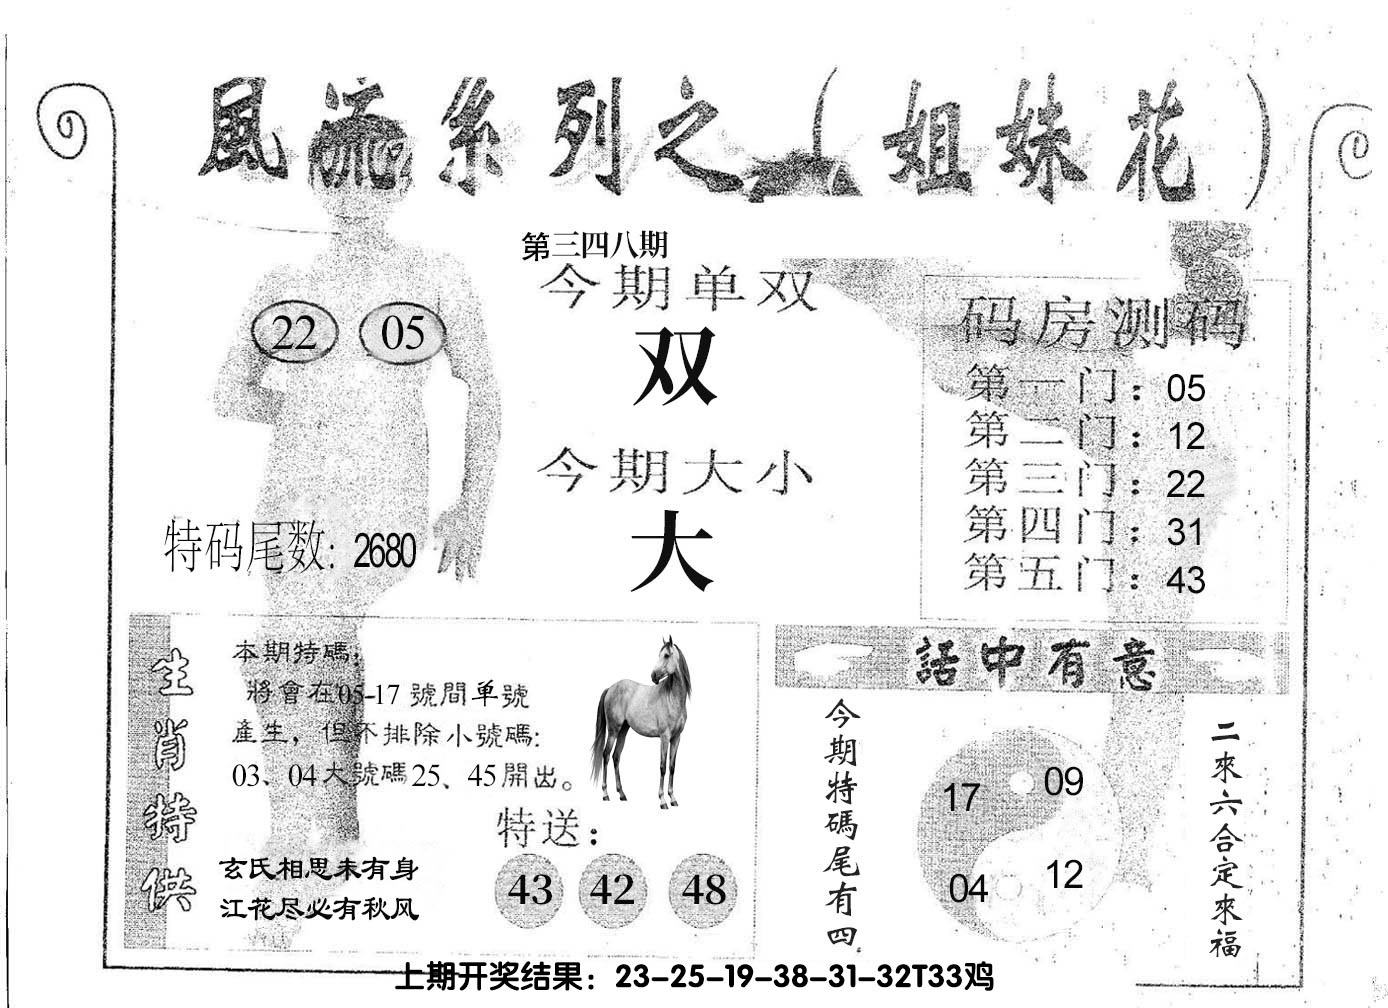 風流系列之（姐妹花）
第三四八期
今期单双
双
22 05
今期大小
大
特码尾数: 2680
码房测码
第一门：05
第二门：12
第三门：22
第四门：31
第五门：43
生肖特供
本期特碼：
將會在05-17 號間单號
產生，但不排除小號碼:
03、04大號碼25、45開出。
特送：
43 42 48
玄氏相思未有身
江花尽必有秋风
話中有意
今期特碼尾有四
17 09
04 12
二來六合定來福
上期开奖结果：23-25-19-38-31-32T33鸡